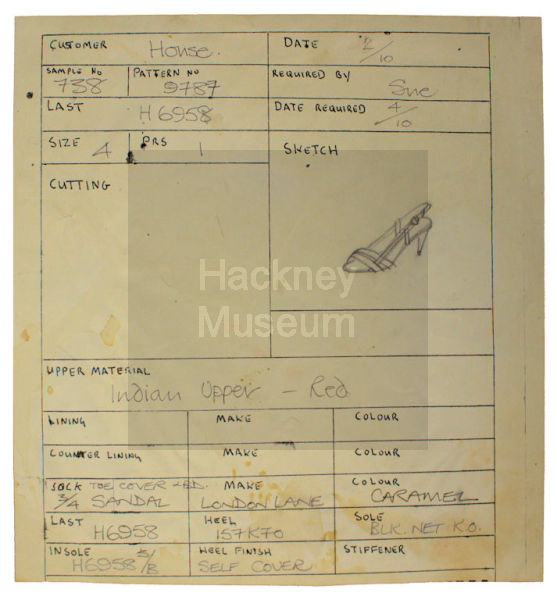 CUSTOMER House. DATE 2/10
SAMPLE NO 738 PATTERN NO 9787 REQUIRED BY Sue
LAST H6958 DATE REQUIRED 4/10
SIZE 4 PRS 1 SKETCH
CUTTING
Hackney
Museum
UPPER MATERIAL
Indian Upper - Red
LINING MAKE COLOUR
COUNTER LINING MAKE COLOUR
SOCK TOE COVER MAKE COLOUR
3/4 SANDAL LONDON LANE CARAMEL
LAST H6958 HEEL 157K70 SOLE BLK. NET K.O.
INSOLE H6958 HEEL FINISH SELF COVER STIFFENER